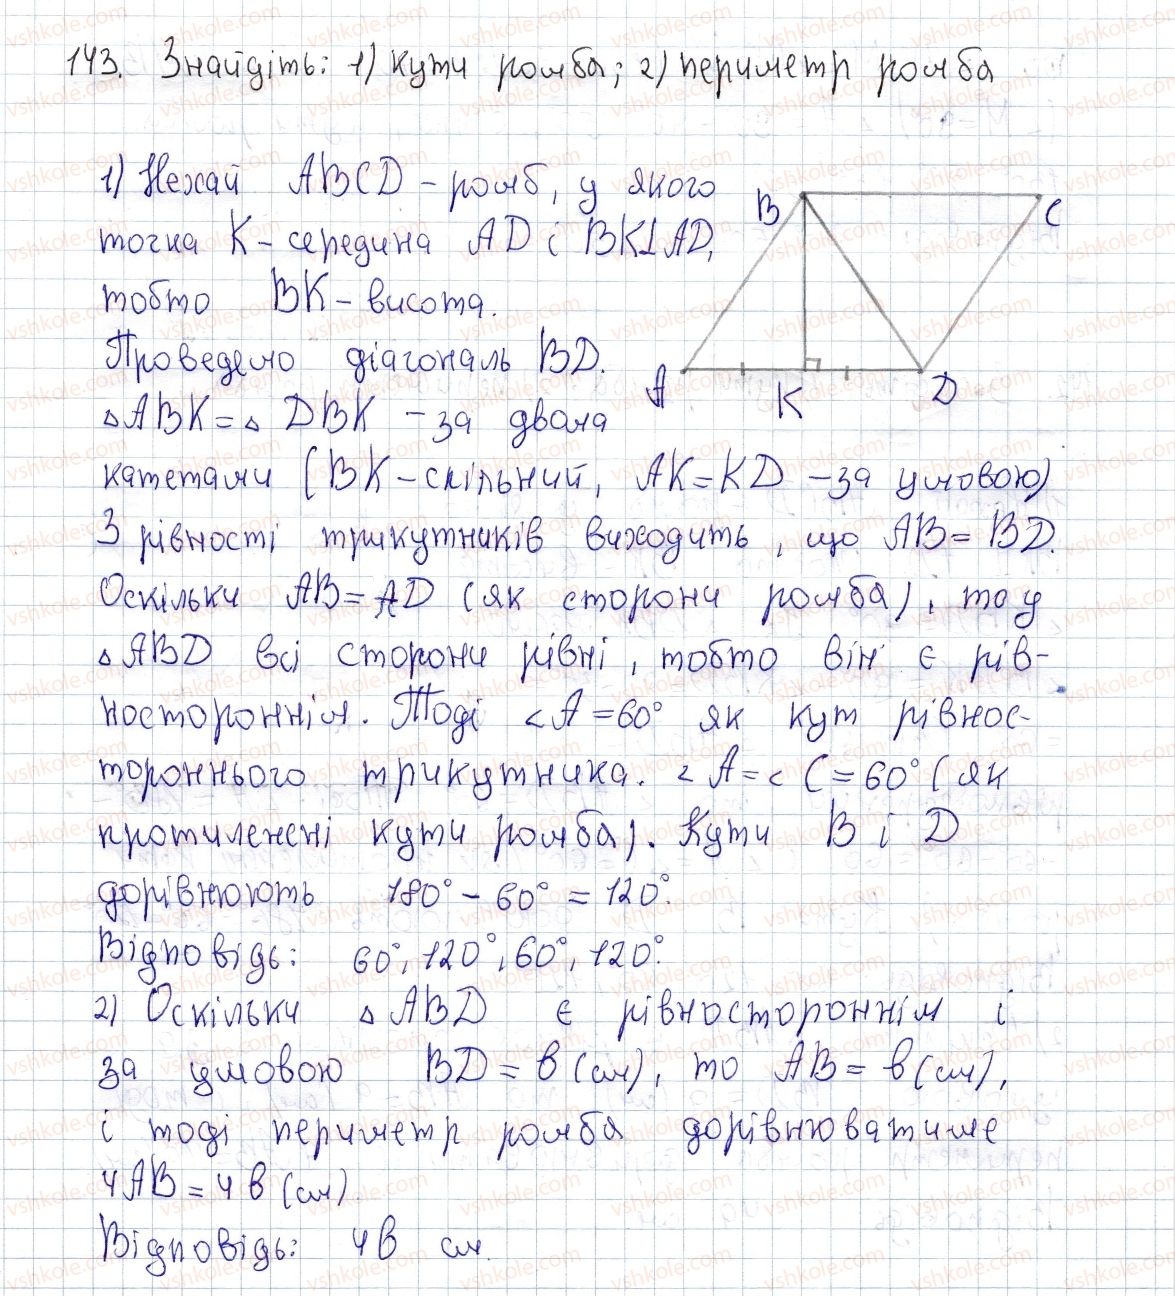 143. Знайдіть: 1) кути ромба; 2) периметр ромба
1) Нехай ABCD – ромб, у якого
точка K – середина AD і BK⊥AD,
тобто BK – висота.
Проведемо діагональ BD.
△ABK = △DBK – за двома
катетами (BK – спільний, AK = KD – за умовою)
З рівності трикутників виходить, що AB = BD.
Оскільки AB = AD (як сторони ромба), то у
△ABD всі сторони рівні, тобто він є рів-
ностороннім. Тоді ∠A = 60° як кут рівнос-
тороннього трикутника. ∠A = ∠C = 60° (як
протилежні кути ромба). Кути B і D
дорівнюють 180° – 60° = 120°.
Відповідь: 60°, 120°, 60°, 120°.
2) Оскільки △ABD є рівностороннім і
за умовою BD = b (см), то AB = b (см),
і тоді периметр ромба дорівнюватиме
4AB = 4b (см).
Відповідь: 4b см.
B
C
A
K
D